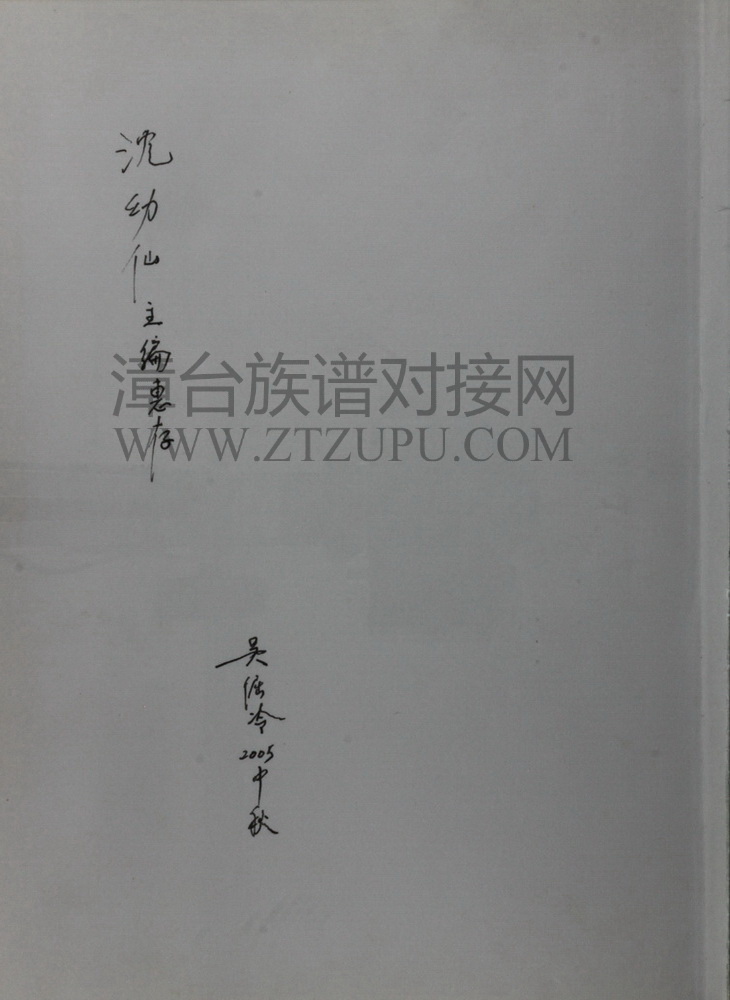 沈幼仙主编惠存
漳台族谱对接网
WWW.ZTZUPU.COM
吴
冷2005中秋